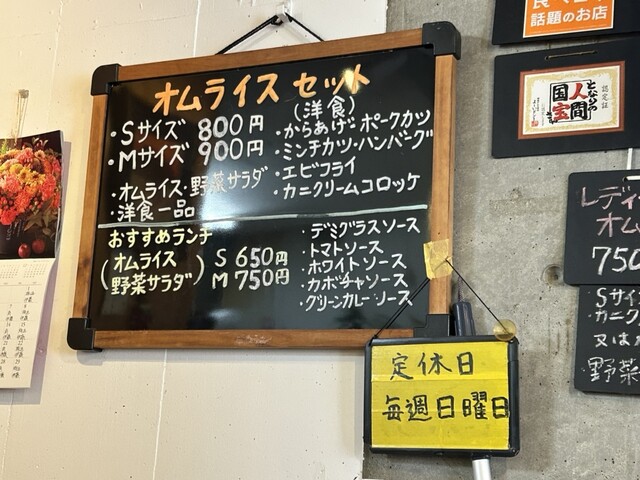 オムライス セット
・Sサイズ 800円
・Mサイズ 900円
・オムライス・野菜サラダ
・洋食一品
(洋食)
・からあげ・ポークカツ
・ミンチカツ・ハンバーグ
・エビフライ
・カニクリームコロッケ
おすすめランチ
(オムライス 野菜サラダ)
S 650円
M 750円
・デミグラスソース
・トマトソース
・ホワイトソース
・カボチャソース
・グリーンカレーソース
定休日
毎週日曜日
話題のお店
認定証
となりの
人間
国宝
レディ
オム
750
Sサイ
・カニク
又は
・野菜